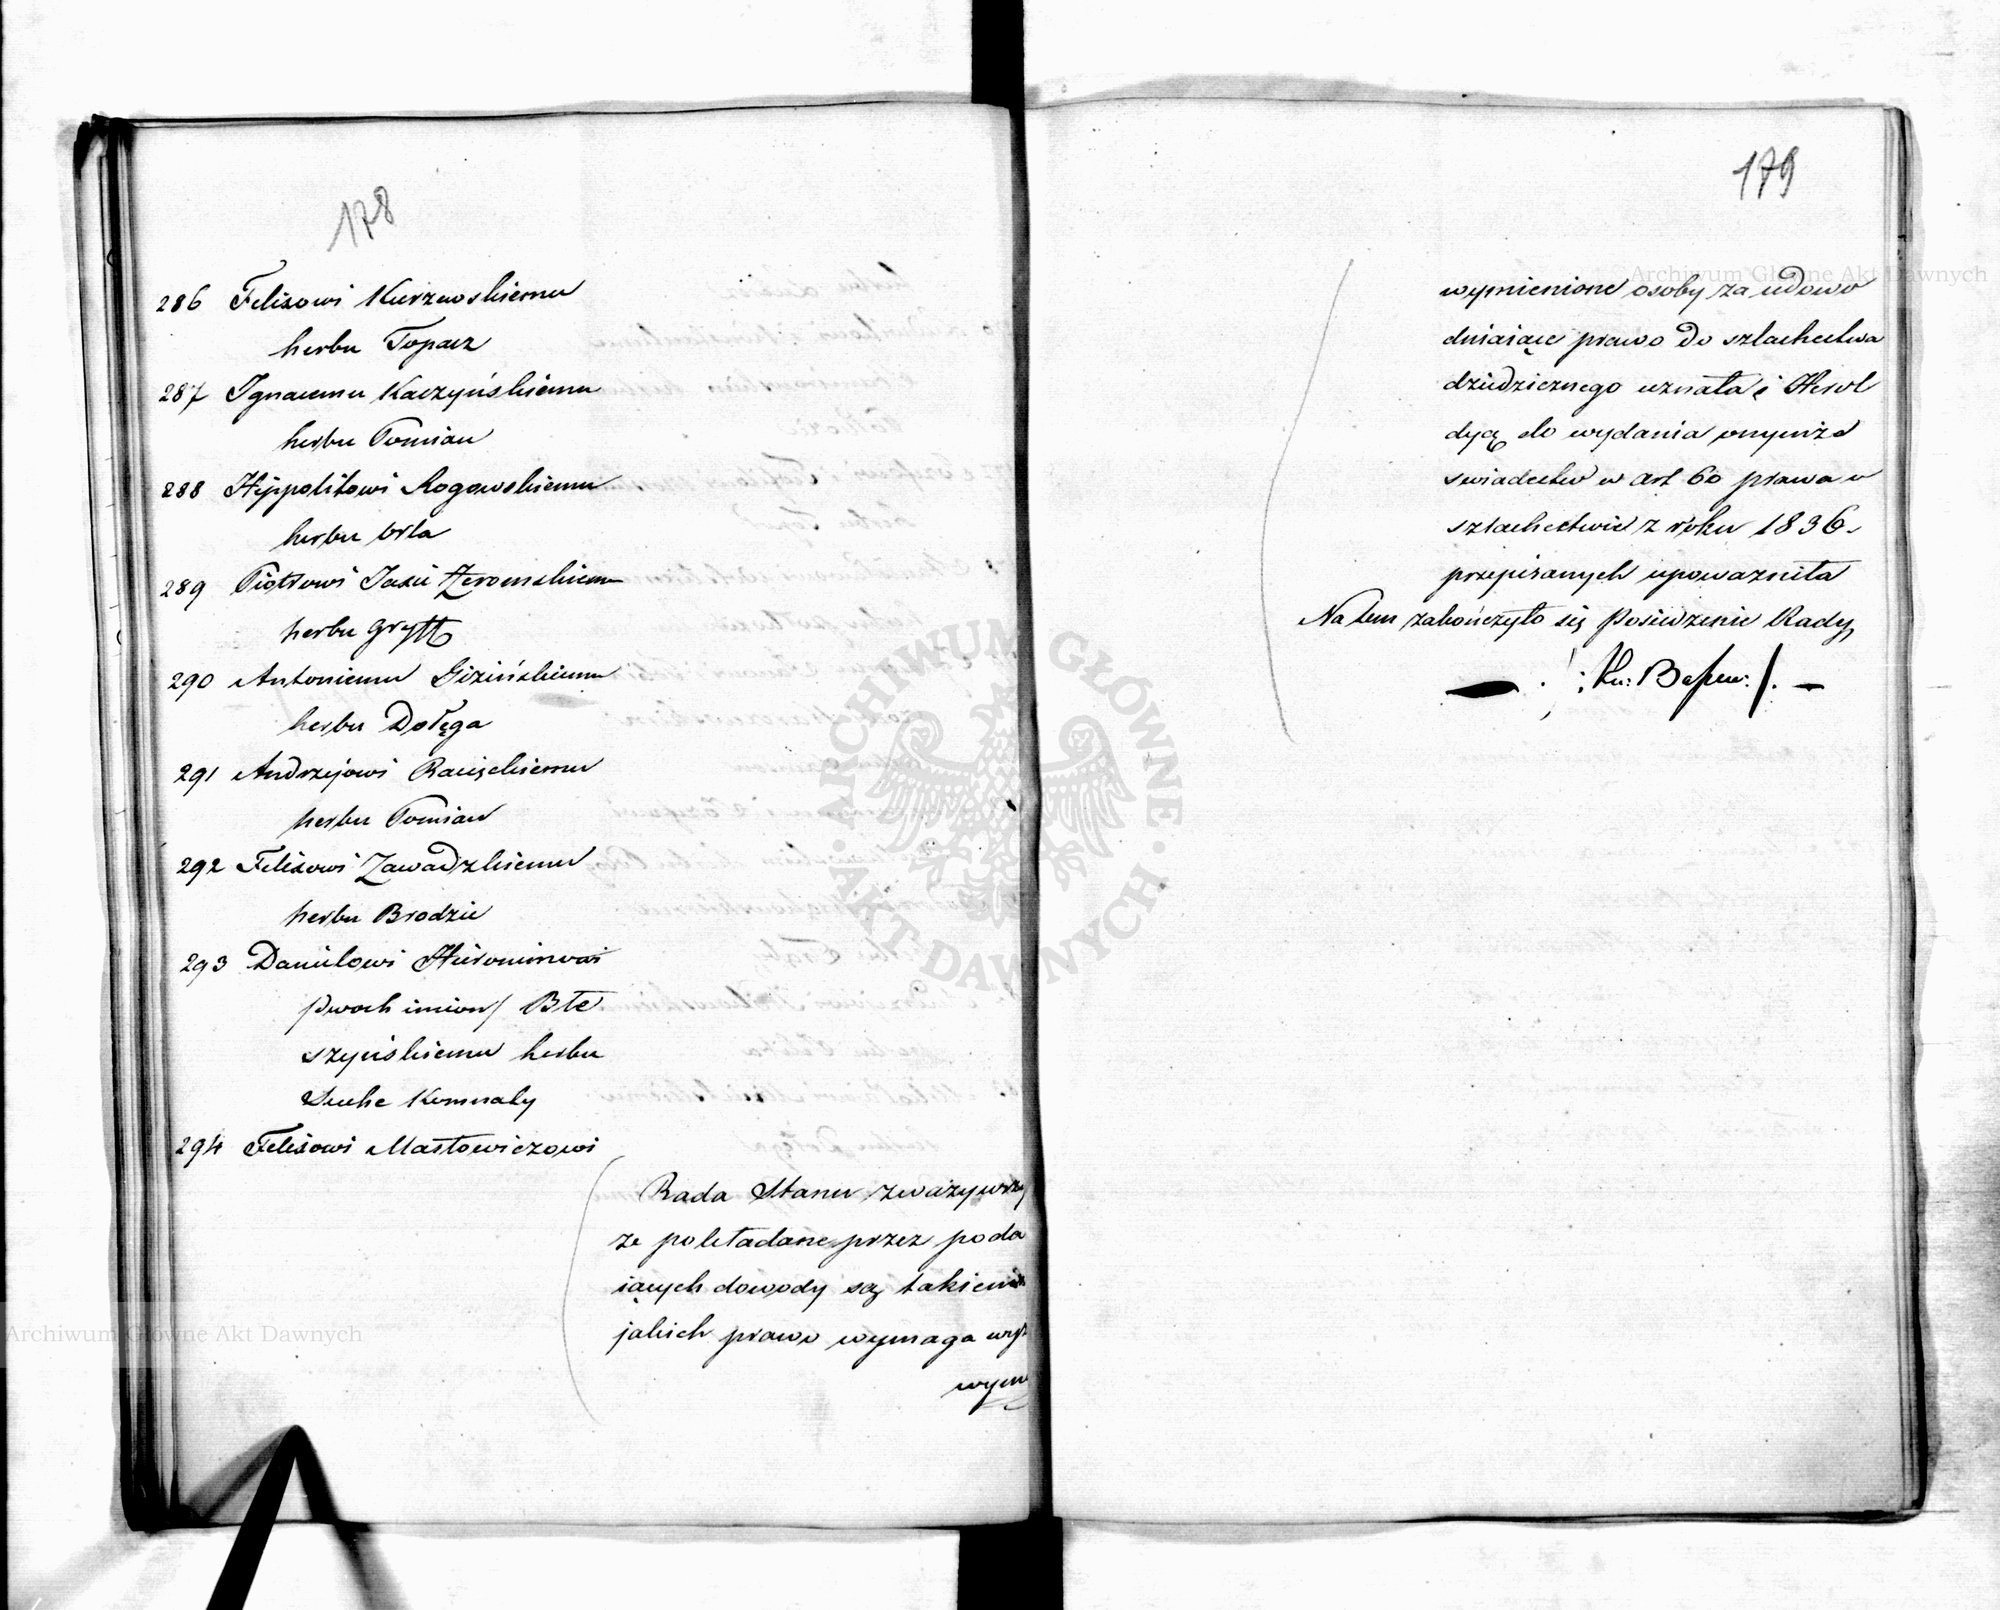 178
286 Felixowi Kurzewskiemu
herbu Topacz
287 Ignacemu Kaczyńskiemu
herbu Pomian
288 Hyppolitowi Rogowskiemu
herbu Orla
289 Piotrowi Żeromskiemu
herbu Gryff
290 Antoniemu Gizińskiemu
herbu Dołęga
291 Andrzejowi Racięckiemu
herbu Pomian
292 Felixowi Zawadzkiemu
herbu Brodzic
293 Danielowi Hieronimowi
/dwoch imion/ Błe
szyńskiemu herbu
Suche Komnaty
294 Felixowi Masłowiczowi
Rada Stanu zważywszy
że pokładane przez poda
iących dowody są takiemi
jakich prawo wymaga wyż
wym
179
wymienione osoby za udowo
dniaiące prawo do szlachectwa
dziedzicznego uznała i Herol
dyą do wydania onymże
swiadectw w art 60 prawa o
szlachectwie z roku 1836.
przepisanych upoważniła
Na tem zakończyło się Posiedzenie Rady
ARCHIWUM GŁÓWNE
AKT DAWNYCH
Archiwum Główne Akt Dawnych
Archiwum Główne Akt Dawnych